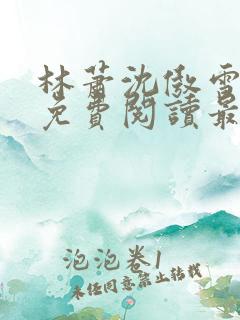 林萧沈傲雪
免費閱讀最
泡泡卷1
未经同意禁止转载